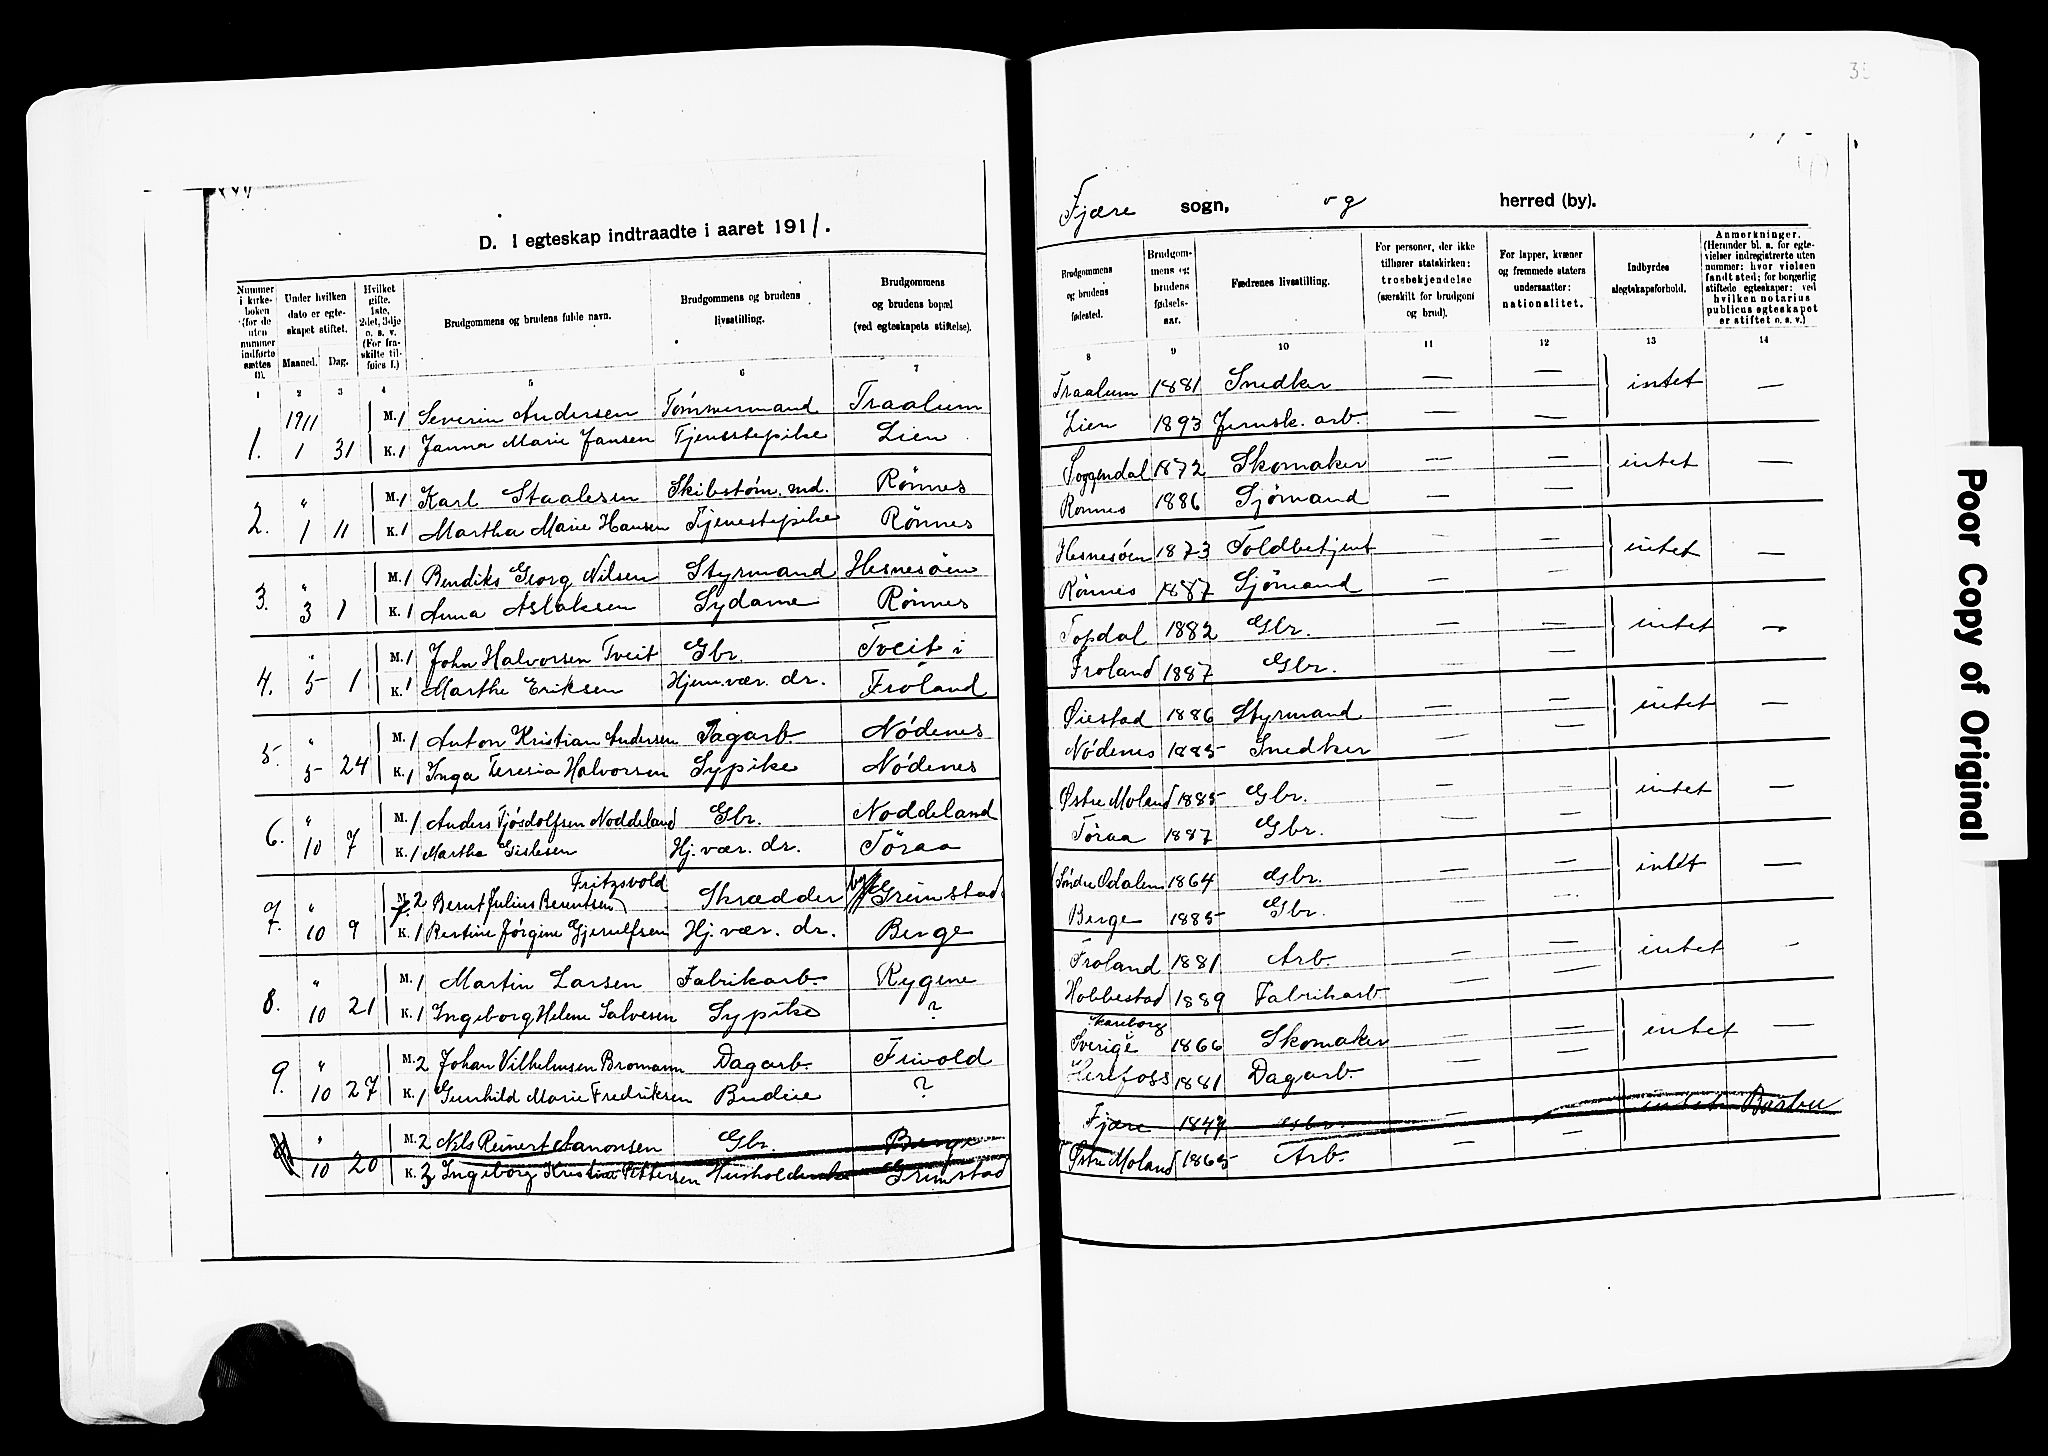 D. I egteskap indtraadte i aaret 1911.
Nummer i kirkeboken (for de uten nummer indførte sættes 0).
Under hvilken dato er egteskapet stiftet.
Maaned. Dag.
Hvilket gifte. 1ste, 2det, 3dje o. s. v. (For fraskilte tilføies f.)
Brudgommens og brudens fulde navn.
Brudgommens og brudens livsstilling.
Brudgommens og brudens bopæl (ved egteskapets stiftelse).
1 2 3 4 5 6 7
1911 M. 1 Severin Andersen Tømmermand Traalum
1. 1 31 K. 1 Janna Marie Jansen Tjenestepike Lien
" M. 1 Karl Staalesen Skibstøm.md. Rønnes
2. 1 11 K. 1 Martha Marie Hansen Tjenestepike Rønnes
" M. 1 Bendiks Georg Nilsen Styrmand Hesnesøen
3. 3 1 K. 1 Anna Aslaksen Sydame Rønnes
" M. 1 John Halvorsen Tveit Gbr. Tveit i
4. 5 1 K. 1 Marthe Eriksen Hjem.vær. dr. Froland
" M. 1 Anton Kristian Andersen Dagarb. Nødenes
5. 5 24 K. 1 Inga Teresia Halvorsen Sypike Nødenes
" M. 1 Anders Tjøsdolfsen Noddeland Gbr. Noddeland
6. 10 7 K. 1 Martha Gislesen Hj. vær. dr. Tøraa
Fritzsvold
" M. 2 Bernt Julius Berentsen Skrædder Grimstad
7. 10 9 K. 1 Jørgine Gjerulfsen Hj. vær. dr. Berge
" M. 1 Martin Larsen Fabrikarb. Rygene
8. 10 21 K. 1 Ingeborg Helene Salvesen Sypike ?
" M. 2 Johan Vilhelmsen Bromann Dagarb. Frivold
9. 10 27 K. 1 Gunhild Marie Fredriksen Budeie ?
" M. 2 Nils Reinert Aanonsen Gbr. Berge
10 20 K. 2 Ingeborg Kristine Pettersen Grimstad
Fjære sogn, og herred (by).
Brudgommens og brudens fødested.
Brudgommens og brudens fødselsaar.
Fædrenes livsstilling.
For personer, der ikke tilhører statskirken: trosbekjendelse (særskilt for brudgom og brud).
For lapper, kvæner og fremmede staters undersaatter: nationalitet.
Indbyrdes slegtskapsforhold.
Anmerkninger. (Herunder bl. a. for egtevielser indregistrerte uten nummer: hvor vielsen fandt sted; for borgerlig stiftede egteskaper: ved hvilken notarius publicus egteskapet er stiftet o. s. v.)
8 9 10 11 12 13 14
Traalum 1881 Snedker — — intet —
Lien 1893 Jernsk. arb. — —
Soggendal 1872 Skomaker — — intet —
Rønnes 1886 Sjømand — —
Hesnesøen 1873 Toldbetjent — — intet —
Rønnes 1887 Sjømand — —
Topdal 1882 Gbr. — — intet —
Froland 1887 Gbr. —
Øiestad 1886 Styrmand — — intet —
Nødenes 1885 Snedker — —
Østre Moland 1885 Gbr. — — intet —
Tøraa 1887 Gbr. — —
Søndre Odalen 1864 Gbr. — — intet —
Berge 1885 Gbr. — —
Froland 1881 Arb. — — intet -
Hobbestad 1889 Fabrikarb. — —
Skareborg
Sverige 1866 Skomaker — — intet —
Herefoss 1881 Dagarb. — —
Fjære Gbr. — intet Barbu
Østre Moland 1865 Arb. — —
Poor Copy of Original